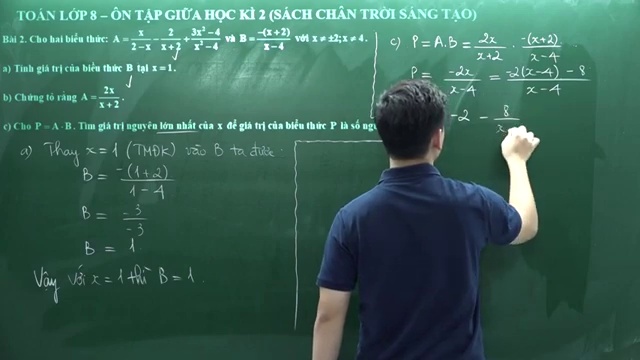 TOÁN LỚP 8 – ÔN TẬP GIỮA HỌC KÌ 2 (SÁCH CHÂN TRỜI SÁNG TẠO)
Bài 2. Cho hai biểu thức: A = x/(2−x) − 2/(x+2) + (3x²−4)/(x²−4) và B = −(x+2)/(x−4) với x ≠ ±2; x ≠ 4.
a) Tính giá trị của biểu thức B tại x = 1.
b) Chứng tỏ rằng A = 2x/(x+2).
c) Cho P = A · B. Tìm giá trị nguyên lớn nhất của x để giá trị của biểu thức P là số
a) Thay x = 1 (TMĐK) vào B ta được:
B = −(1+2)/(1−4)
B = −3/−3
B = 1.
Vậy với x = 1 thì B = 1.
c) P = A.B = 2x/(x+2) · −(x+2)/(x−4)
P = −2x/(x−4) = (−2(x−4) − 8)/(x−4)
−2 − 8/x